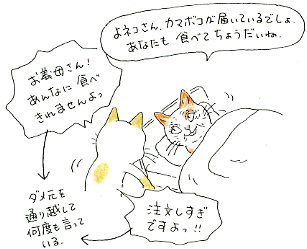 よネコさん、カマボコが届いているでしょ。
あなたも食べてちょうだいね。
お義母さん!
あんなに食べ
きれませんよっ
ダメ元を
通り越して
何度も言って
いる。
注文しすぎ
ですよっ!!